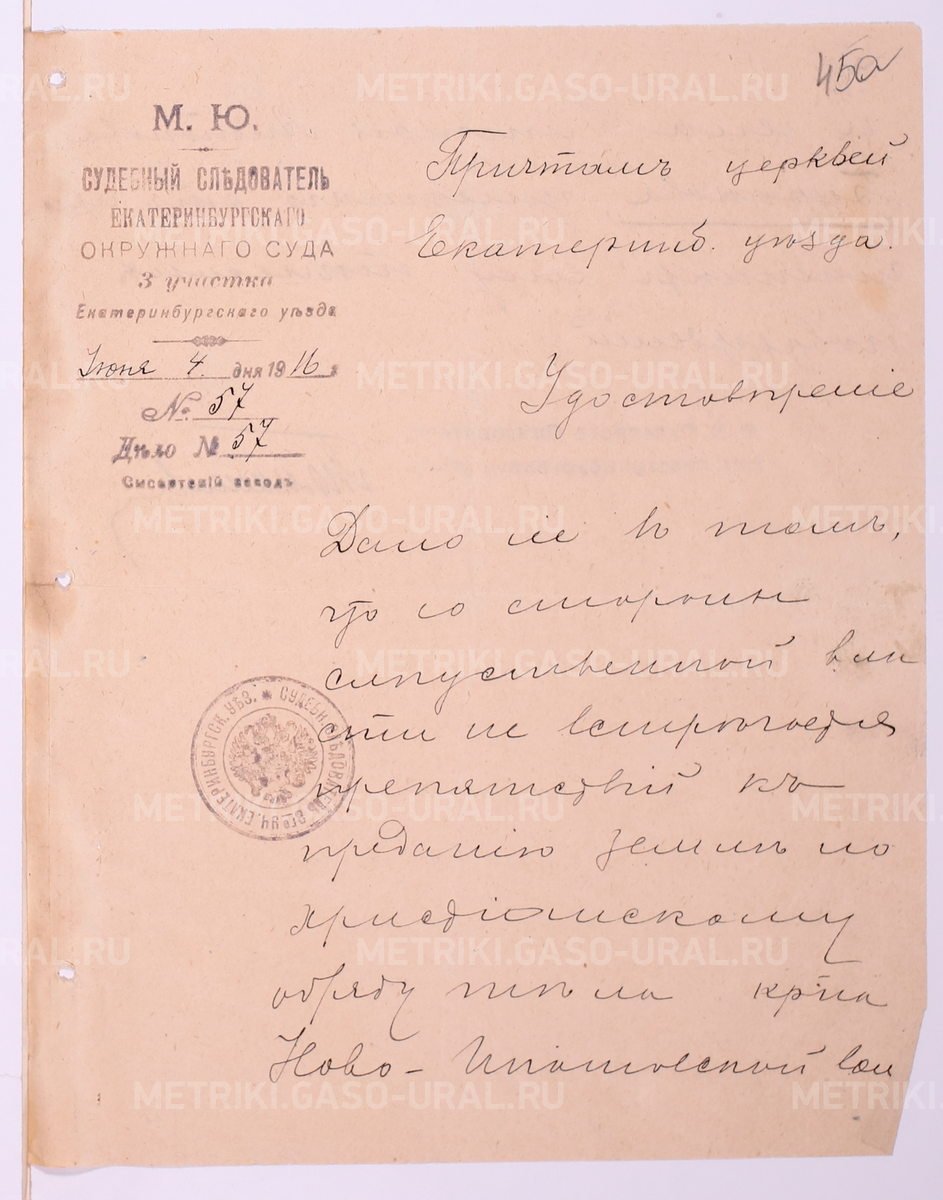 450
М. Ю.
СУДЕБНЫЙ СЛѢДОВАТЕЛЬ
ЕКАТЕРИНБУРГСКАГО
ОКРУЖНАГО СУДА
3 участка
Екатеринбургскаго уѣзда
Июня 4 дня 1916 г
№ 57
Дѣло № 57
Сысертскій заводъ
Причтамъ церквей
Екатеринб. уѣзда.
Удостовѣреніе
Дано сіе въ томъ,
что со стороны
слѣдственной вла
сти не встрѣчается
препятствій къ
преданію землѣ по
христіанскому
обряду тѣла кр-на
Ново-Ипатовской вол
СУДЕБН. СЛѢДОВАТЕЛЬ 3го УЧ. ЕКАТЕРИНБУРГСК. УѢЗ.
METRIKI.GASO-URAL.RU